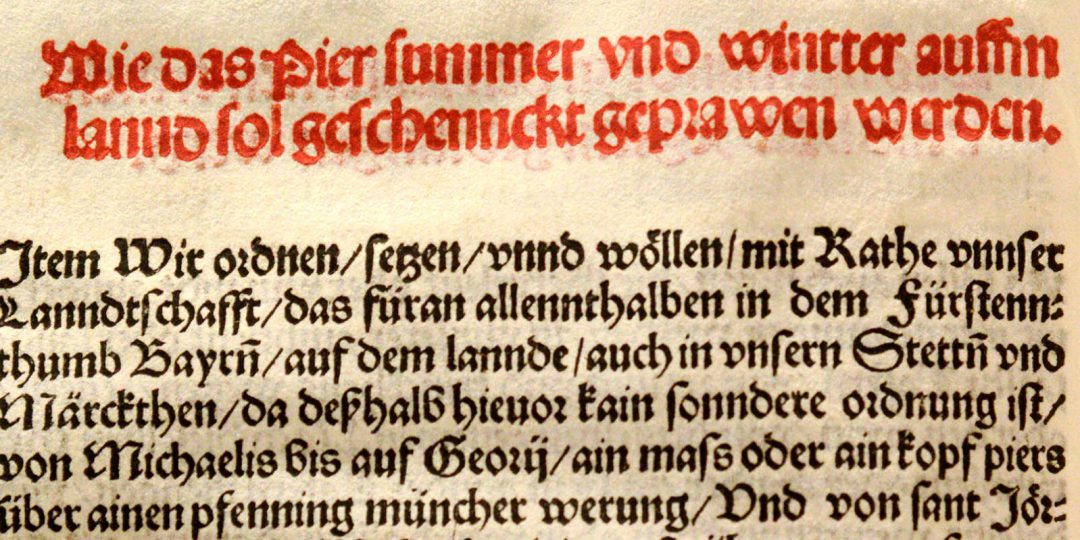 Wie das Pier summer vnd wintter auffm
lannd sol geschennckt geprawen werden.
Jtem Wir ordnen/setzen/vnnd wöllen/mit Rathe vnnser
Lanndtschafft/das füran allennthalben in dem Fürstenn⸗
thumb Bayrñ/auf dem lannde/auch in vnsern Stettñ vnd
Märckthen/da deßhalb hieuor kain sonndere ordnung ist/
von Michaelis bis auf Georij/ain mass oder ain kopf piers
über ainen pfenning müncher werung/Vnd von sant Jör⸗